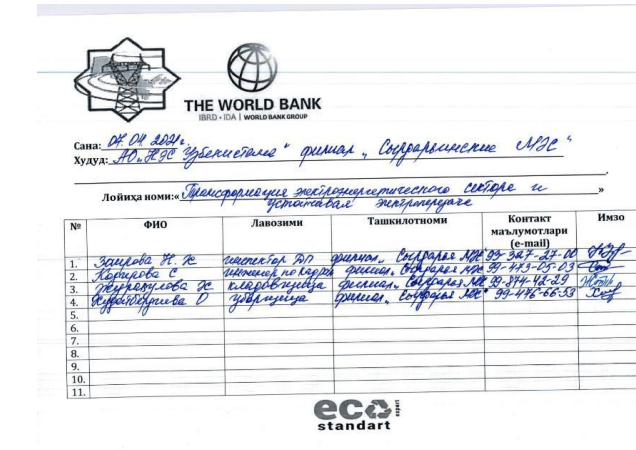 THE WORLD BANK
IBRD • IDA | WORLD BANK GROUP
Сана: 07.04.2021г.
Худуд: АО „НЭС Узбекистана" филиал „Сырдарьинские МЭС"
Лойиҳа номи:« Трансформация электроэнергетического сектора и »
устойчивая электропередача
№ ФИО Лавозими Ташкилотноми Контакт маълумотлари (e-mail) Имзо
1. Заирова Н. Х инспектор ДП филиал „Сырдарья МЭС" 93-327-27-00
2. Кадирова С инженер по кадрам филиал „Сырдарья МЭС 99-473-05-03
3. Журакулова Х кладовщица филиал „Сырдарья МЭС 99-874-42-29
4. Худойбердиева О уборщица филиал „Сырдарья МЭС" 99-476-66-53
5.
6.
7.
8.
9.
10.
11.
eco expert
standart